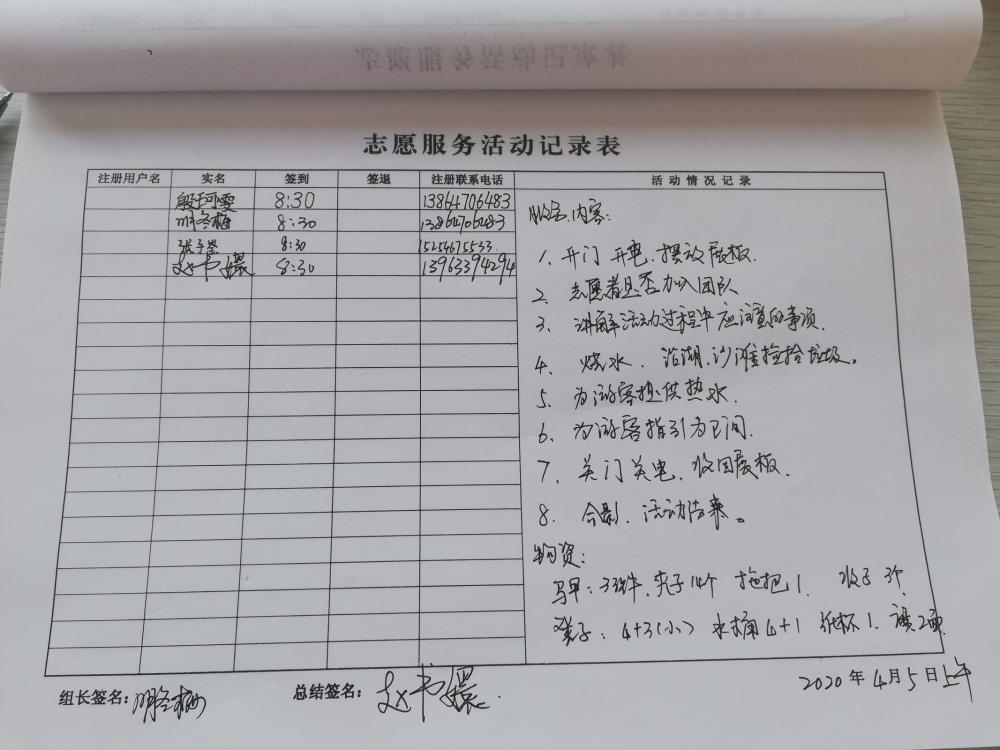 志愿服务活动记录表
注册用户名 实名 签到 签退 注册联系电话 活动情况记录
殷珂雯 8:30 13864706483
明冬梅 8:30 13864706283
张子莹 8:30 15254675533
赵书媛 8:30 13963394294
服务内容:
1、开门 开电、摆放展板.
2、志愿者是否加入团队
3、讲解活动过程中应注意的事项.
4、烧水、沿湖、沙滩捡拾垃圾。
5、为游客提供热水.
6、为游客指引卫间.
7、关门关电、收回展板.
8、合影、活动结束。
物资:
马甲:33件、夹子14个 拖把1.
凳子:4+3(小) 水桶4+1 纸杯1.
组长签名:明冬梅 总结签名:赵书媛.
2020年4月5日上午